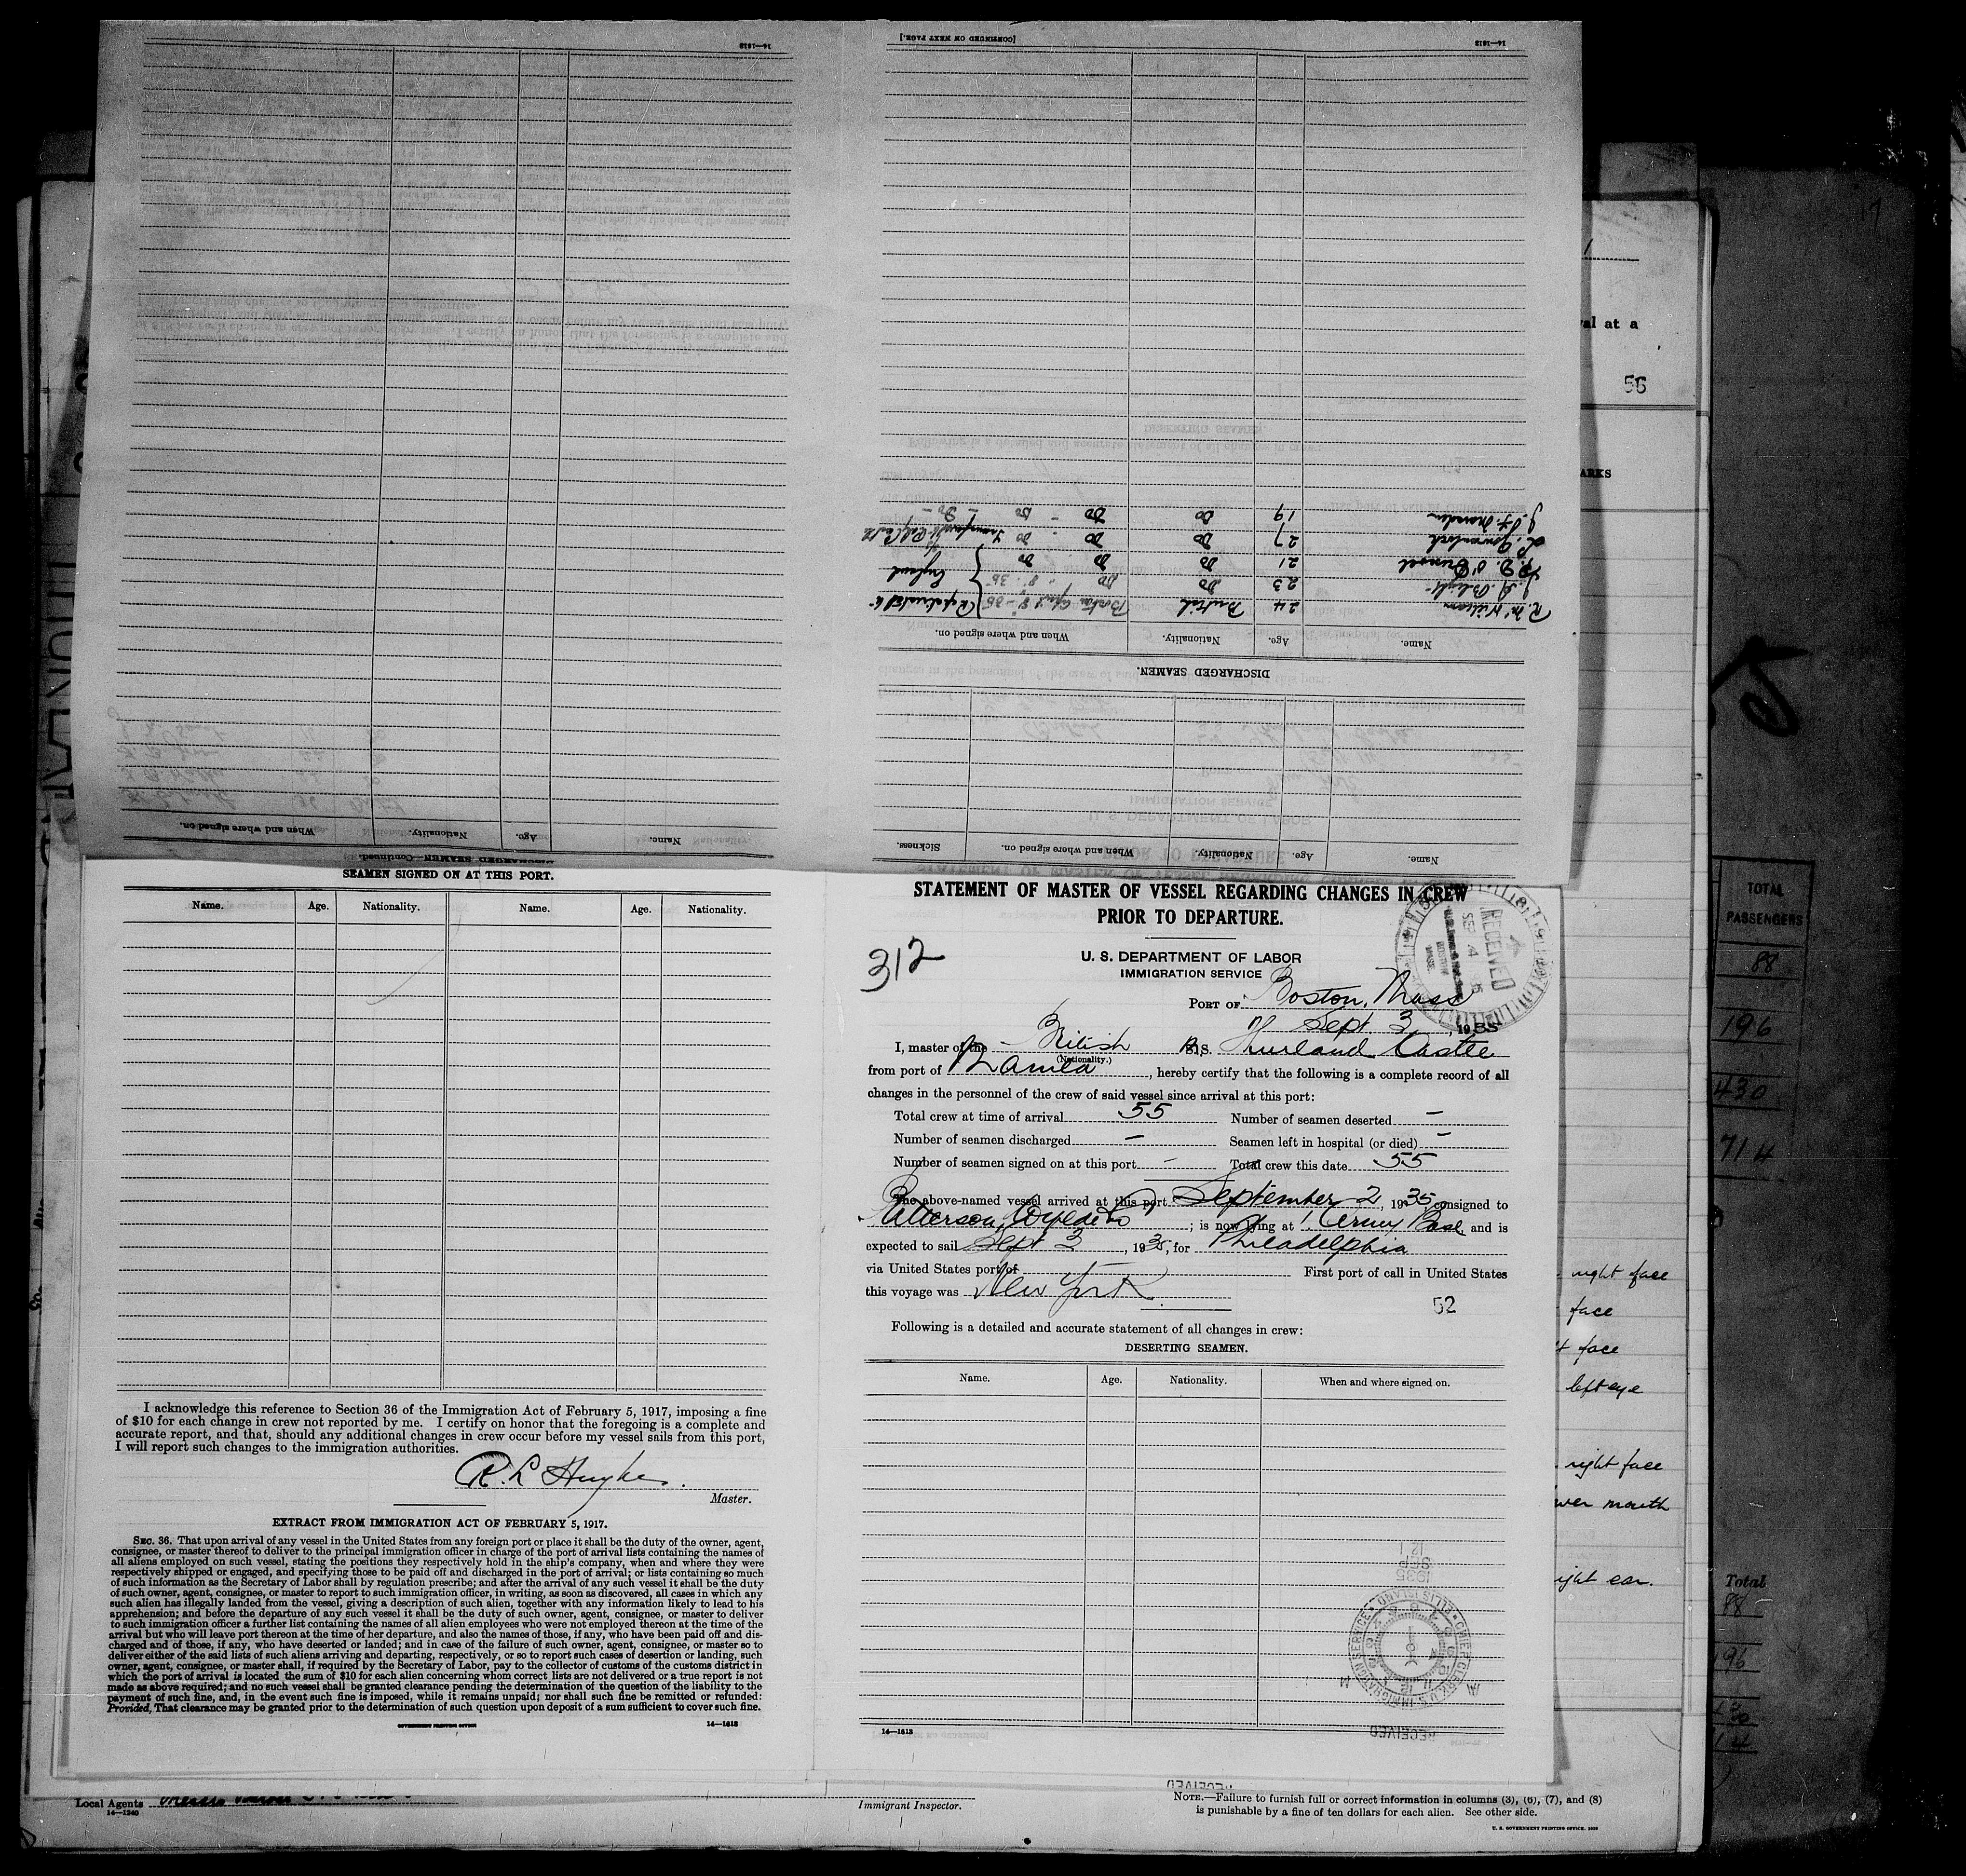 [CONTINUED ON NEXT PAGE.]
14—1613
14—1613
J. H. Marsden 19 Do Do Do - Do -
27 Do Do Do
21 Do Do Do England
23 Do Do
R. M. Wilson 24 British Boston Repatriated to
Name. Age. Nationality. When and where signed on.
DISCHARGED SEAMEN.
Name. Age. Nationality. When and where signed on. Sickness.
Name. Age. Nationality. When and where signed on.
DISCHARGED SEAMEN—Continued.
SEAMEN SIGNED ON AT THIS PORT.
Name. Age. Nationality. Name. Age. Nationality.
I acknowledge this reference to Section 36 of the Immigration Act of February 5, 1917, imposing a fine
of $10 for each change in crew not reported by me. I certify on honor that the foregoing is a complete and
accurate report, and that, should any additional changes in crew occur before my vessel sails from this port,
I will report such changes to the immigration authorities.
R. L Hughes.
Master.
EXTRACT FROM IMMIGRATION ACT OF FEBRUARY 5, 1917.
SEC. 36. That upon arrival of any vessel in the United States from any foreign port or place it shall be the duty of the owner, agent,
consignee, or master thereof to deliver to the principal immigration officer in charge of the port of arrival lists containing the names of
all aliens employed on such vessel, stating the positions they respectively hold in the ship's company, when and where they were
respectively shipped or engaged, and specifying those to be paid off and discharged in the port of arrival; or lists containing so much
of such information as the Secretary of Labor shall by regulation prescribe; and after the arrival of any such vessel it shall be the duty
of such owner, agent, consignee, or master to report to such immigration officer, in writing, as soon as discovered, all cases in which any
such alien has illegally landed from the vessel, giving a description of such alien, together with any information likely to lead to his
apprehension; and before the departure of any such vessel it shall be the duty of such owner, agent, consignee, or master to deliver
to such immigration officer a further list containing the names of all alien employees who were not employed thereon at the time of the
arrival but who will leave port thereon at the time of her departure, and also the names of those, if any, who have been paid off and dis-
charged and of those, if any, who have deserted or landed; and in case of the failure of such owner, agent, consignee, or master so to
deliver either of the said lists of such aliens arriving and departing, respectively, or so to report such cases of desertion or landing, such
owner, agent, consignee, or master shall, if required by the Secretary of Labor, pay to the collector of customs of the customs district in
which the port of arrival is located the sum of $10 for each alien concerning whom correct lists are not delivered or a true report is not
made as above required; and no such vessel shall be granted clearance pending the determination of the question of the liability to the
payment of such fine, and, in the event such fine is imposed, while it remains unpaid; nor shall such fine be remitted or refunded:
Provided, That clearance may be granted prior to the determination of such question upon deposit of a sum sufficient to cover such fine.
GOVERNMENT PRINTING OFFICE 14—1613
STATEMENT OF MASTER OF VESSEL REGARDING CHANGES IN CREW
PRIOR TO DEPARTURE.
312
U. S. DEPARTMENT OF LABOR
IMMIGRATION SERVICE
RECEIVED
SEP 4
BOSTON
MASS.
PORT OF Boston, Mass
Sept 3, 1935
I, master of the British S.
(Nationality.)
from port of Manila, hereby certify that the following is a complete record of all
changes in the personnel of the crew of said vessel since arrival at this port:
Total crew at time of arrival 55 Number of seamen deserted —
Number of seamen discharged — Seamen left in hospital (or died) —
Number of seamen signed on at this port - Total crew this date 55
The above-named vessel arrived at this port September 2, 1935, consigned to
Patterson, Wylde & Co; is now lying at Army Base, and is
expected to sail Sept 3, 1935, for Philadelphia
via United States port of First port of call in United States
this voyage was New York.
52
Following is a detailed and accurate statement of all changes in crew:
DESERTING SEAMEN.
Name. Age. Nationality. When and where signed on.
1935
SEP
RECEIVED
14—1613
Local Agents
14—1240
Immigrant Inspector.
NOTE.—Failure to furnish full or correct information in columns (3), (6), (7), and (8)
is punishable by a fine of ten dollars for each alien. See other side.
val at a
56
ARKS
right face
face
face
left eye
right face
mouth
ear.
TOTAL
PASSENGERS
88
196
430
714
Total
88